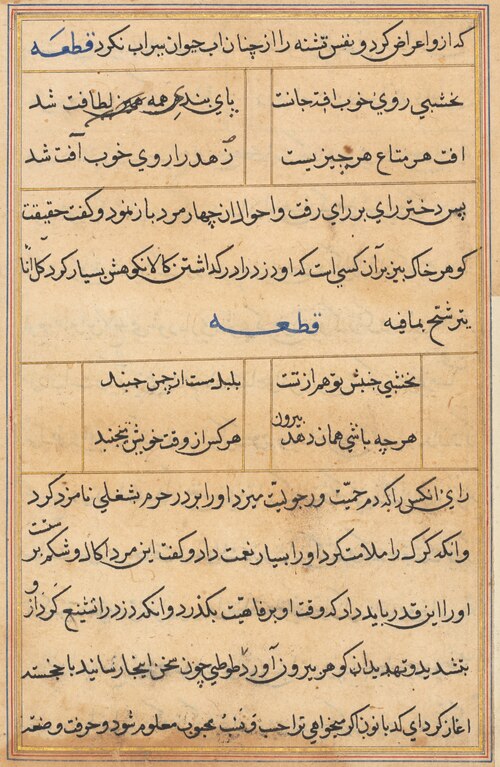 که ازو اعراض کرد و نفس تشنه را از چنان آب حیوان سیراب نکرد قطعه
نخشبی روی خوب افت جانت پای بندی همه لطافت شد
افت هر متاع هر چیزیست زهد را روی خوب آفت شد
پس دختر رای بر رای رفت و احوال ان چهار مرد باز نمود و گفت حقیقت
کوهر خاک بیز بر آن کسی است که او دزد را در کذاشتن کالا نکوهش بسیار کرد کل انا
یترشح بمافیه قطعه
نخشبی جنبش تو هم از تست بلبل مست از چمن جنبد
هر چه باشی همان دهد بیرون هر کس از وقت خویشتن جنبد
رای انکس را که دم حمیت و رجولیت میزد او را بر در حرم بشغلی نامزد کرد
وانکه کرک را ملامت کرد او را بسیار نعمت داد و گفت این مرد اکال و شکم پرست
او را این قدر باید داد که وقت او برفاهیت بکذرد وانکه دزد را تشنیع کرد از و
بتشدید و تهدید ان کوهر بیرون آورد طوطی چون سخن اینجا رسانید با خجسته
اغاز کرد ای کدبانو اگر میخواهی ترا حسب و نسب محبوب معلوم شود و حرفت و صنعت